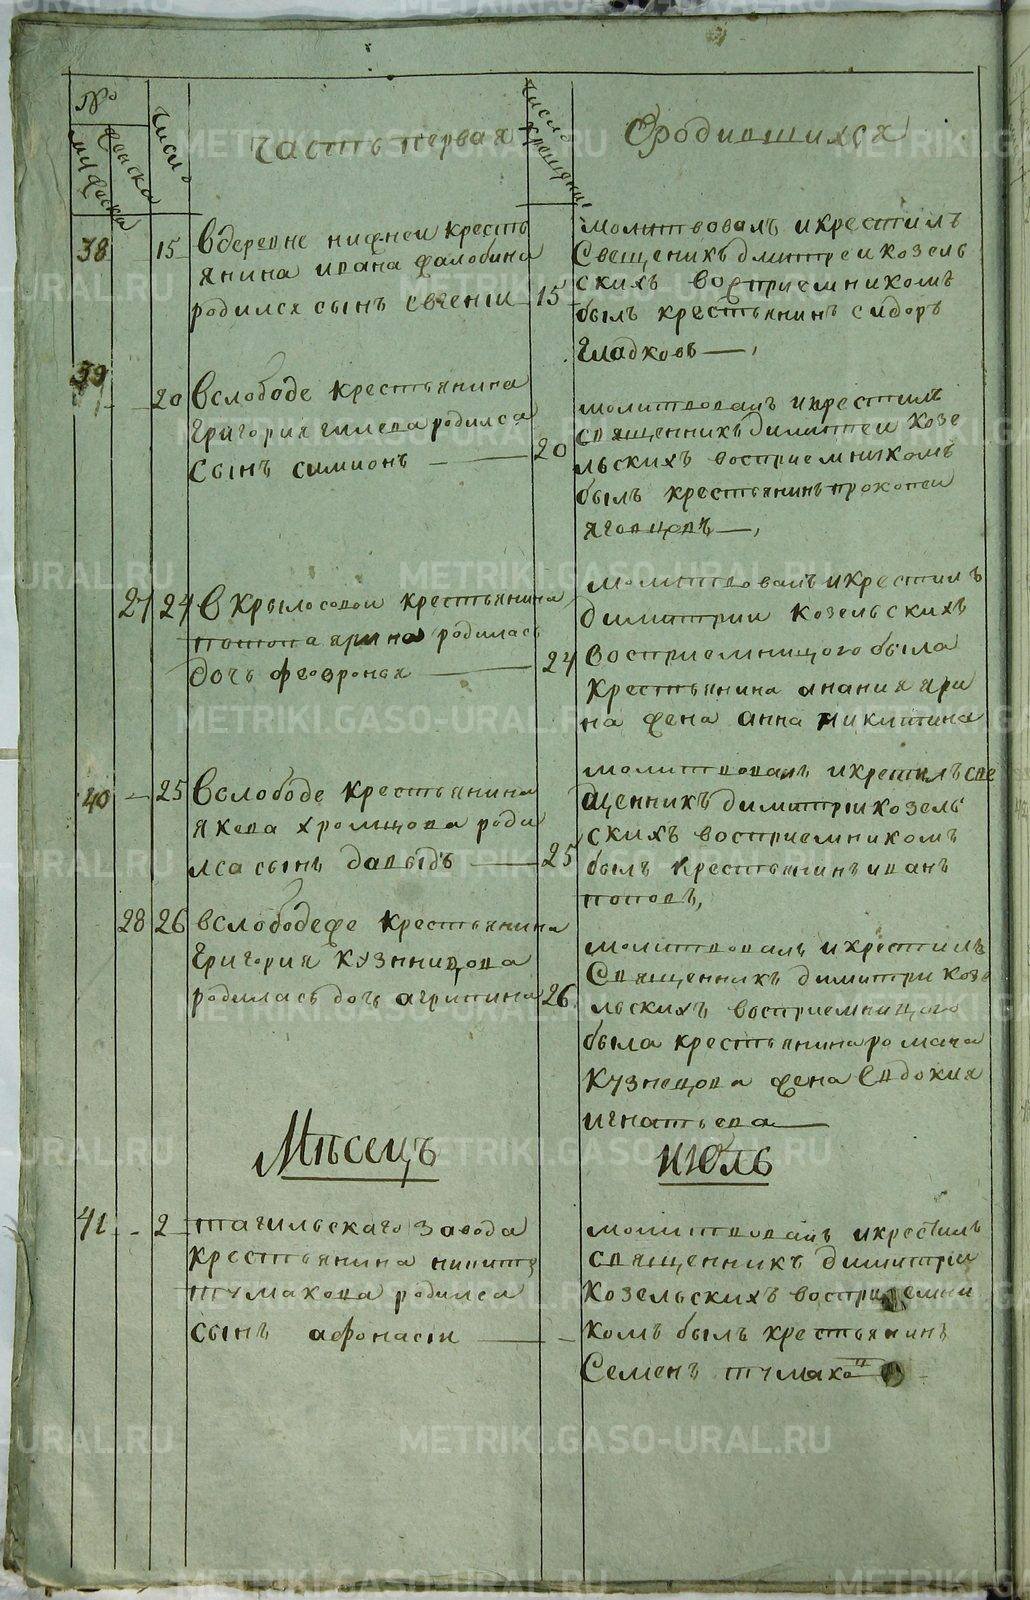 №
муска
женска
число
часть первая
число крещения
О родившихся
38
15
в деревне нижней кресть
янина ивана фалобина
родился сынъ евгении
15
молитвовалъ и крестилъ
Свещеникъ дмитреи козель
скихъ восприемникомъ
былъ крестьянинъ сидоръ
гладковъ
39
20
в слободе крестьянина
григория гилева родился
сынъ симионъ
20
молитвовалъ и крестилъ
священникъ димитреи козе
льскихъ восприемникомъ
былъ крестьянинъ прокопеи
яговцовъ
27
24
в крылосовои крестьянина
потопа ярина родилась
дочь февронья
24
молитвовалъ и крестилъ
димитрии козельскихъ
восприемницою была
крестьянина анания яри
на жена анна никитина
40
25
в слободе крестьянина
якова хромцова роди
лса сынъ давыдъ
25
молитвовалъ и крестилъ све
щенникъ димитрии козель
скихъ восприемникомъ
былъ крестьянинъ иванъ
поповъ,
28
26
в слободе же крестьянина
григория кузнницова
родилась дочь агрипина
26
молитвовалъ и крестилъ
Священникъ димитри козе
льскихъ восприемницою
была крестьянина романа
кузнецова жена Евдокия
игнатьева
Мѣсецъ
июль
41
2
тагильскаго завода
крестьянина никиты
тумакова родился
сынъ афонасіи
молитвовалъ и крестилъ
священникъ димитріи
козельскихъ восприемни
комъ былъ крестьянинъ
Семенъ тумаковъ
METRIKI.GASO-URAL.RU